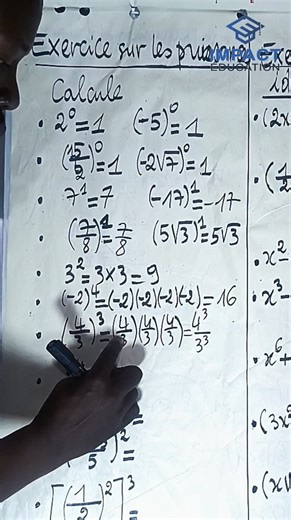 Exercice sur les
IMPACT
EDUCATION
Calcule
• 2⁰=1 (-5)⁰=1
• (15/2)⁰=1 (-2√7)⁰=1
• 7¹=7 (-17)¹=-17
• (7/8)¹=7/8 (5√3)¹=5√3
• 3²=3×3=9
• (-2)⁴=(-2)(-2)(-2)(-2)=16
• (4/3)³=(4/3)(4/3)(4/3)=4³/3³
=
5)²=
[(1/2)²]³=
• (2x
• x²-
• x³-
• x⁶+
• (3x
• (x